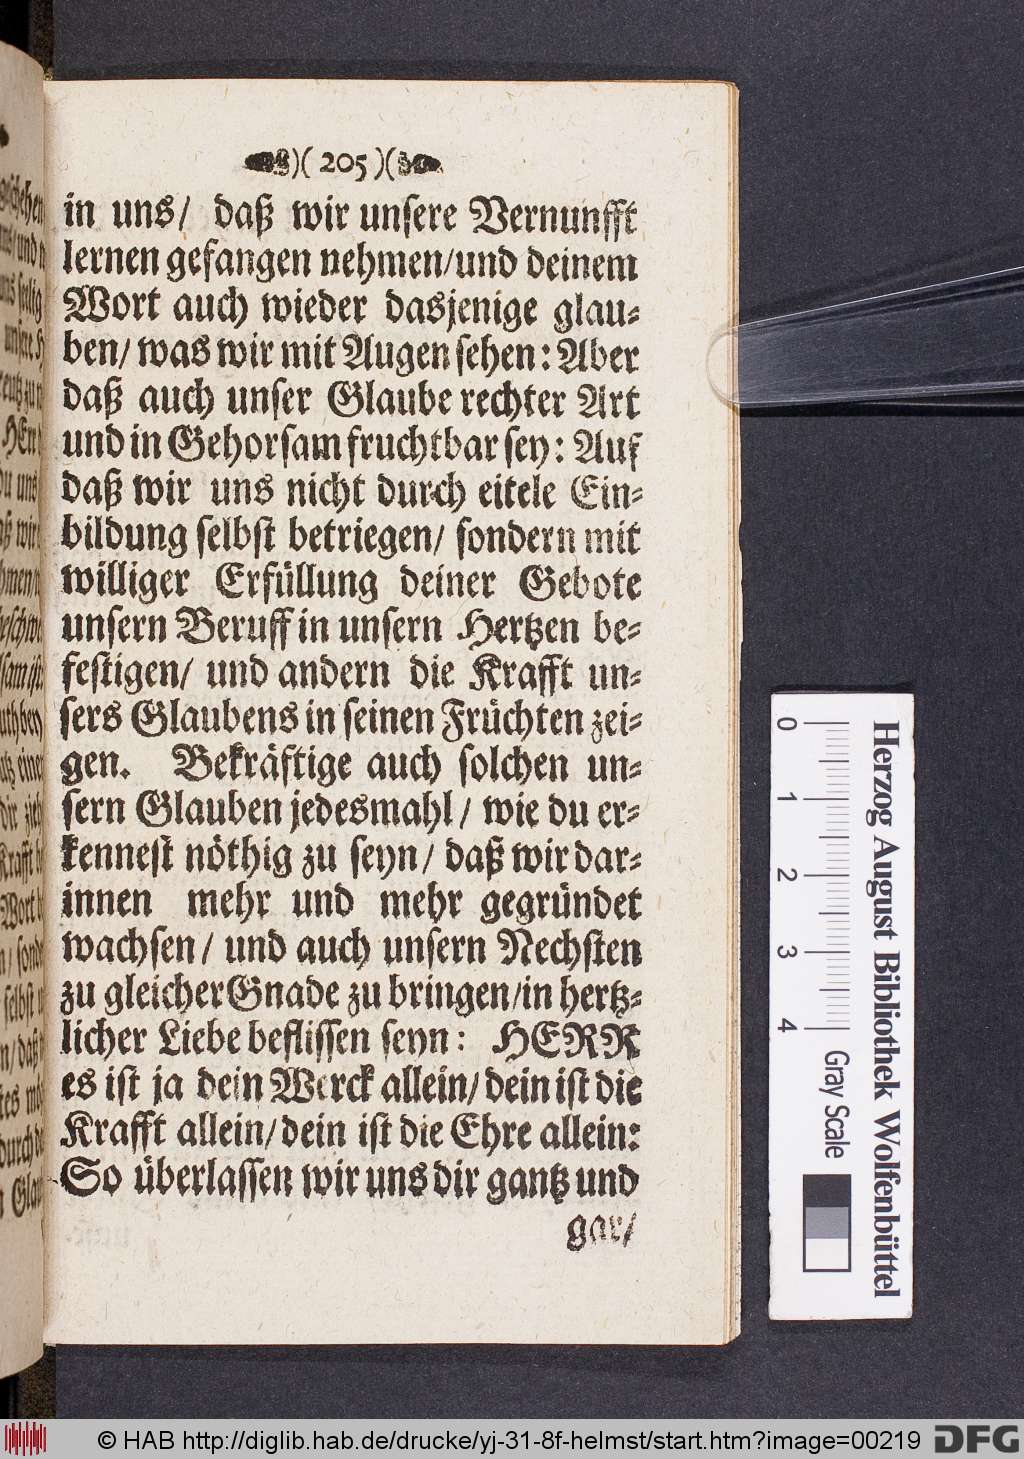 )( 205 )(
in uns/ daß wir unsere Vernunfft
lernen gefangen nehmen/und deinem
Wort auch wieder dasjenige glau⸗
ben/ was wir mit Augen sehen: Aber
daß auch unser Glaube rechter Art
und in Gehorsam fruchtbar sey: Auf
daß wir uns nicht durch eitele Ein⸗
bildung selbst betriegen/ sondern mit
williger Erfüllung deiner Gebote
unsern Beruff in unsern Hertzen be⸗
festigen/ und andern die Krafft un⸗
sers Glaubens in seinen Früchten zei⸗
gen. Bekräftige auch solchen un⸗
sern Glauben jedesmahl/ wie du er⸗
kennest nöthig zu seyn/ daß wir dar⸗
innen mehr und mehr gegründet
wachsen/ und auch unsern Nechsten
zu gleicher Gnade zu bringen/in hertz⸗
licher Liebe beflissen seyn: HERR
es ist ja dein Werck allein/ dein ist die
Krafft allein/ dein ist die Ehre allein:
So überlassen wir uns dir gantz und
gar/
Herzog August Bibliothek Wolfenbüttel
0 1 2 3 4 Gray Scale
© HAB http://diglib.hab.de/drucke/yj-31-8f-helmst/start.htm?image=00219 DFG